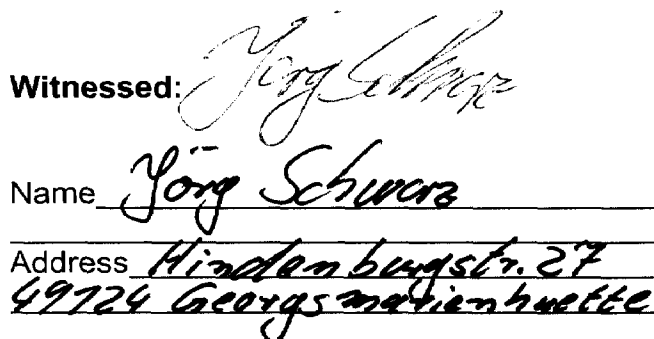 Witnessed: Jörg Schwarz
Name Jörg Schwarz
Address Hindenburgstr. 27
49124 Georgsmarienhuette